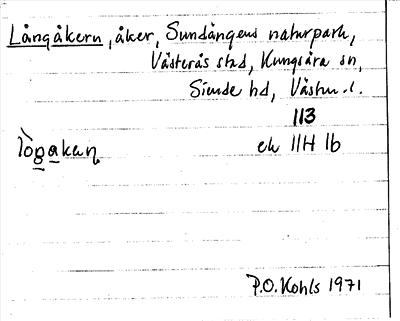 Långåkern, åker, Sundängens naturpark,
Västerås stad, Kungsåra sn,
Siende hd, Västm. l.
113
ek 11H 1b
lò̱ga̱kaɳ
P.O. Kohls 1971